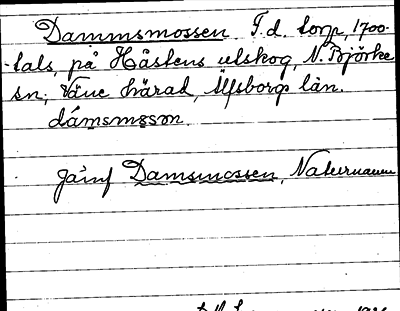 Dammsmossen F.d. torp, 1700-
-tals, på Håstens utskog, N. Björke
sn; Väne härad, Älfsborgs län.
dámsmssøn.
Jämf Damsmossen, Naturnamn